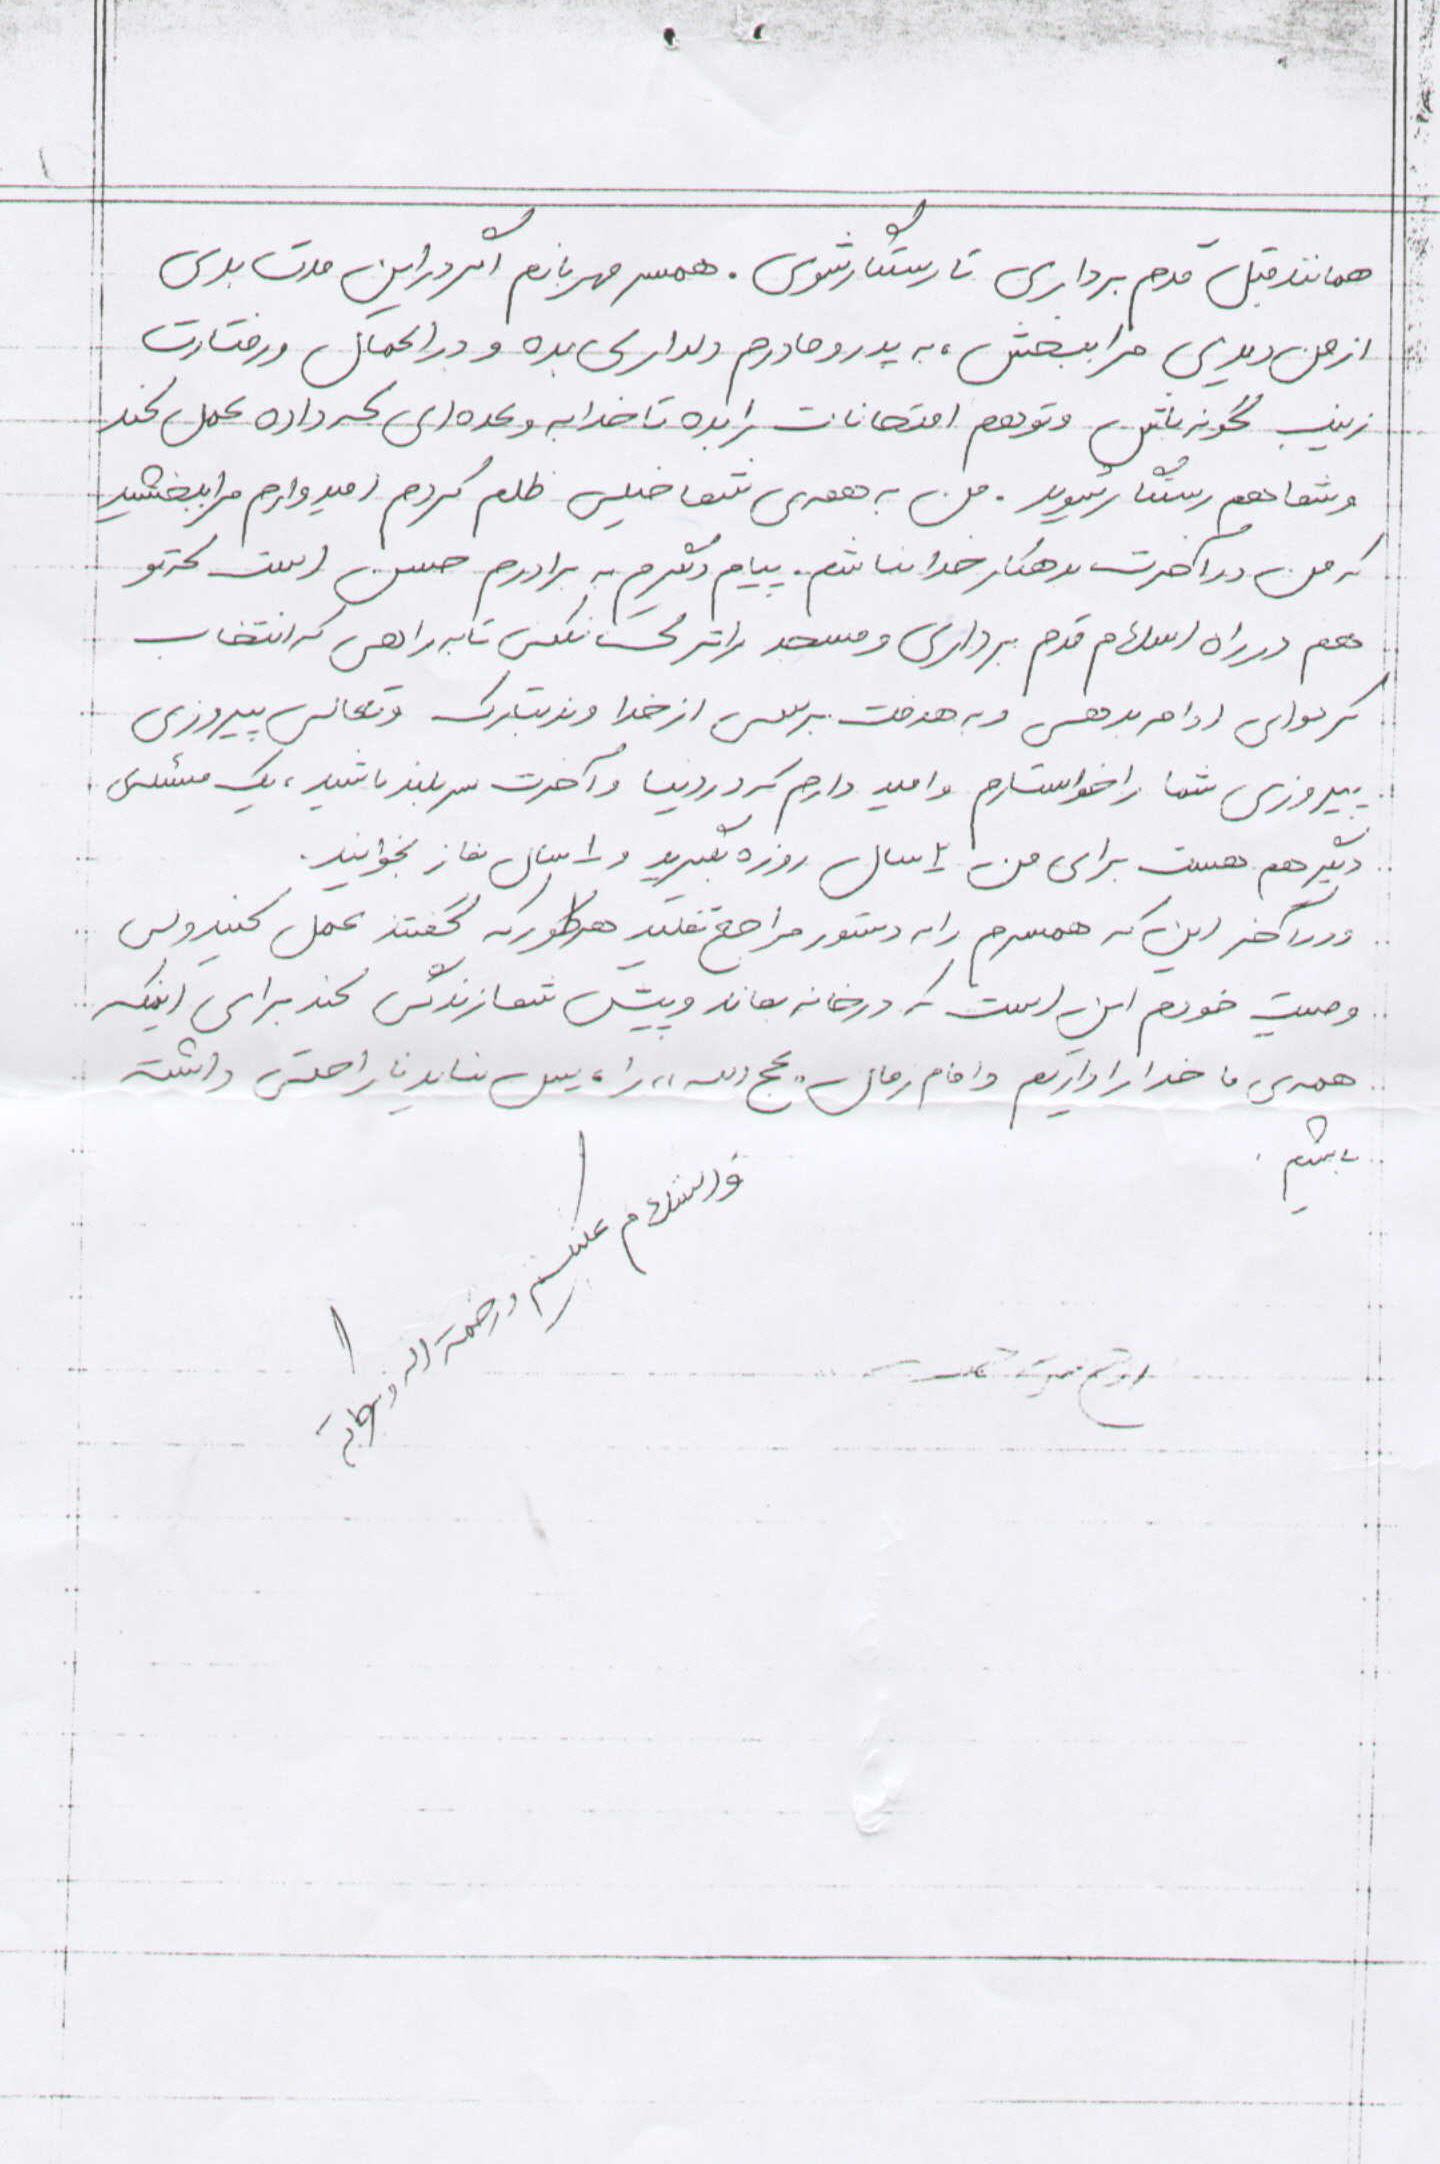 همانند قبل قدم برداری تا رستگار شوی . همسر مهربانم اگر در این مدت بدی
از من دیدی مرا ببخش ، به پدر و مادرم دلداری بده و در اعمال و رفتارت
زینب گونه باش و تو هم امتحانات را بده تا خدا به وعده‌ای که داده عمل کند
و شما هم رستگار شوید . من به همه‌ی شما خیلی ظلم کردم امیدوارم مرا ببخشید
که من در آخرت بدهکار خدا نباشم . پیام دیگرم به برادرم حسن است که تو
هم در راه اسلام قدم برداری و مسجد را ترک نکنی تا به راهی که انتخاب
کرده‌ای ادامه بدهی و به هدفت برسی از خداوند تبارک و تعالی پیروزی
پیروزی شما را خواستارم و امید دارم که در دنیا و آخرت سربلند باشید ، یک مسئله‌ی
دیگر هم هست برای من سال روزه بگیرید و سال نماز بخوانید .
و در آخر این که همسرم را به دستور مراجع تقلید هر طور که گفتند عمل کنید ولی
وصیت خودم این است که در خانه بماند و پیش شما زندگی کند برای اینکه
همه‌ی ما خدا را داریم و امام زمان «عج اله» را ، پس نباید ناراحتی داشته
باشیم .
والسلام علیکم و رحمة اله و برکاته